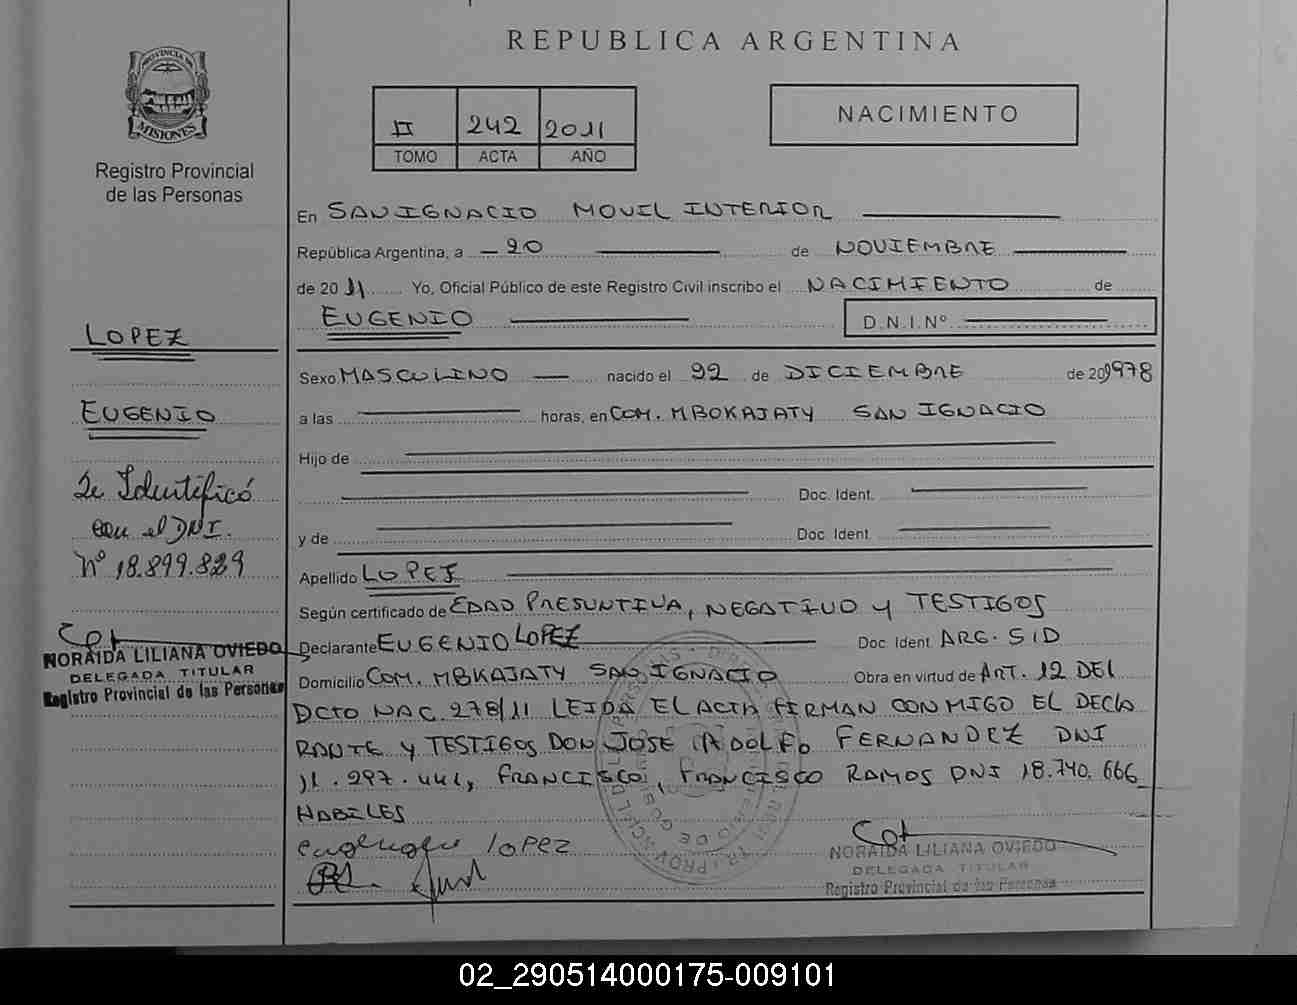 REPUBLICA ARGENTINA
PROVINCIA DE
MISIONES
Registro Provincial
de las Personas
II 242 2011
TOMO ACTA AÑO
NACIMIENTO
En SAN IGNACIO MOVIL INTERIOR
República Argentina, a 20 de NOVIEMBRE
de 2011 Yo, Oficial Público de este Registro Civil inscribo el NACIMIENTO de
EUGENIO D.N.I.Nº
LOPEZ
EUGENIO
Se Identificó
con el DNI.
Nº 18.899.829
NORAIDA LILIANA OVIEDO
DELEGADA TITULAR
Registro Provincial de las Personas
Sexo MASCULINO nacido el 22 de DICIEMBRE de 1978
a las horas, en COM. MBOKAJATY SAN IGNACIO
Hijo de
Doc. Ident.
y de Doc. Ident.
Apellido LOPEZ
Según certificado de EDAD PRESUNTIVA, NEGATIVO y TESTIGOS
Declarante EUGENIO LOPEZ Doc. Ident. ARG. S/D
Domicilio COM. MBKAJATY SAN IGNACIO Obra en virtud de ART. 12 DEL
DCTO NAC. 278/11 LEIDA EL ACTA FIRMAN CONMIGO EL DECLA
RANTE y TESTIGOS DON JOSE ADOLFO FERNANDEZ DNI
11.297.441, FRANCISCO, FRANCISCO RAMOS DNI 18.740.666
HABILES
lopez
NORAIDA LILIANA OVIEDO
DELEGADA TITULAR
Registro Provincial de las Personas
02_290514000175-009101